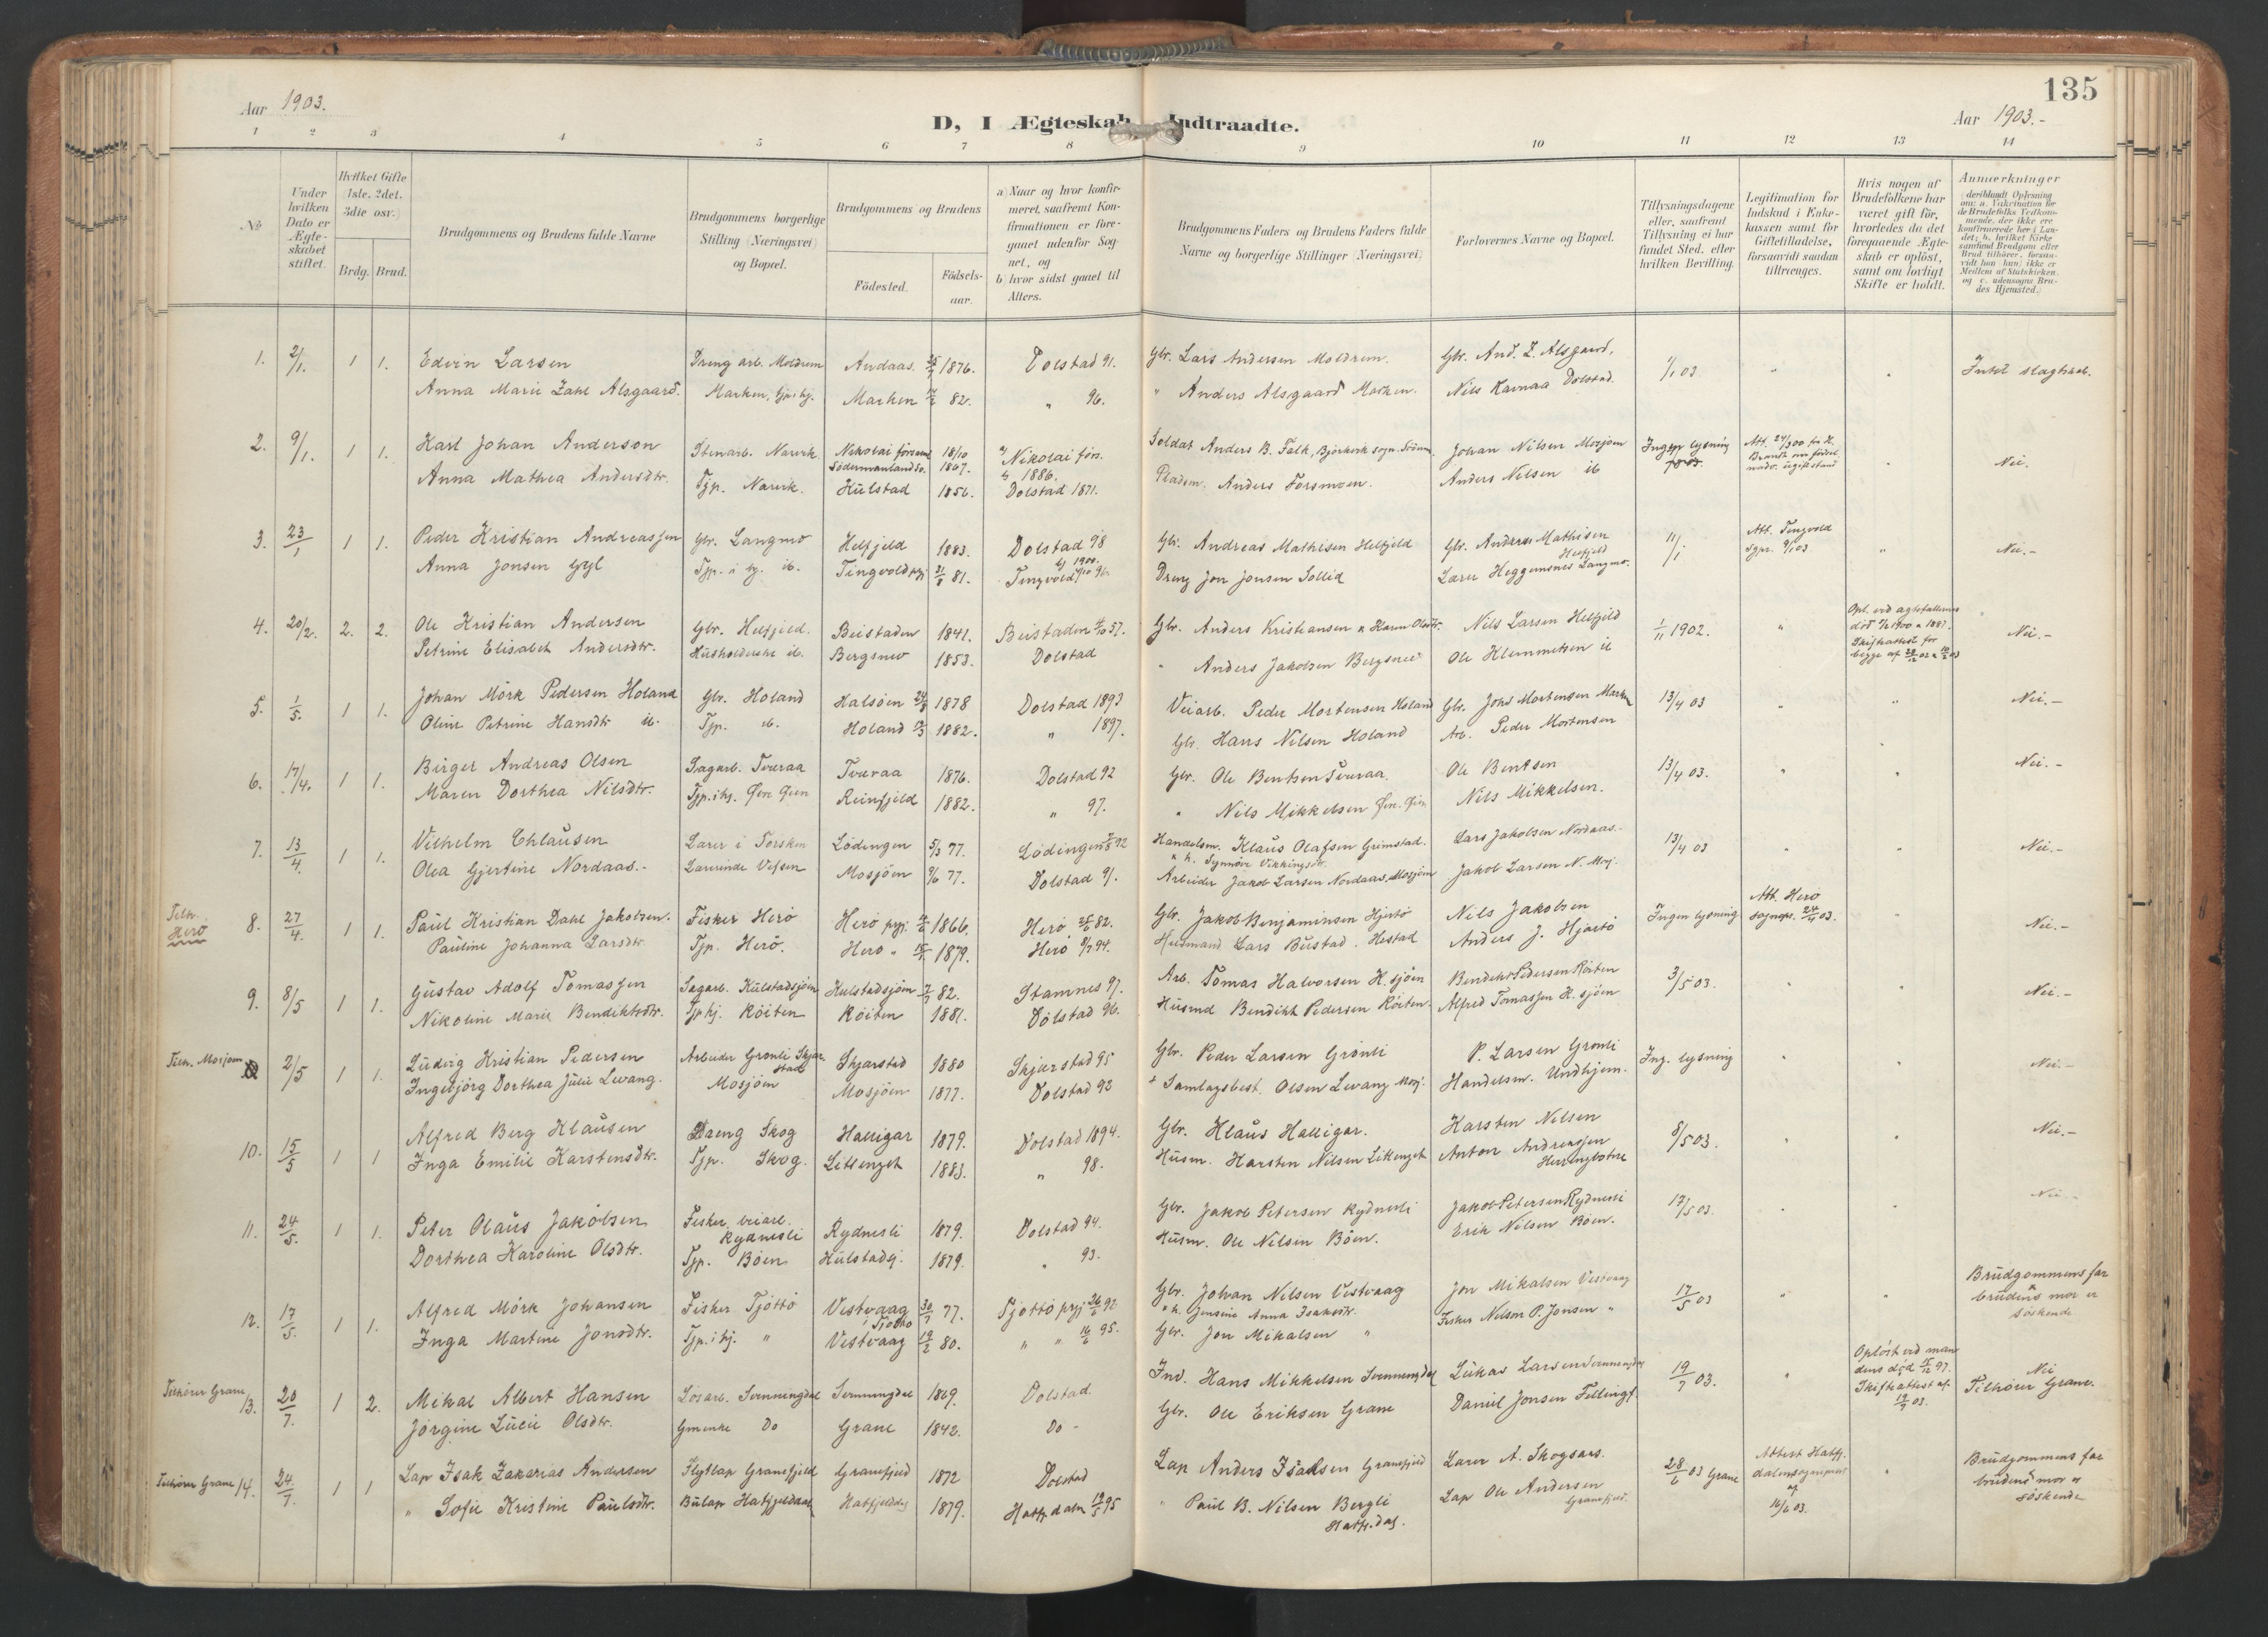 135
Aar 1903.
D, I Ægteskab Indtraadte.
Aar 1903.-
1 2 3 4 5 6 7 8 9 10 11 12 13 14
No
Under hvilken Dato er Ægteskabet stiftet.
Hvilket Gifte (1ste, 2det, 3die osv.)
Brdg. Brud.
Brudgommens og Brudens fulde Navne
Brudgommens borgerlige Stilling (Næringsvei) og Bopæl.
Brudgommens og Brudens
Födested. Födsels-aar.
a) Naar og hvor konfirmeret, saafremt Konfirmationen er foregaaet udenfor Sognet, og
b) hvor sidst gaaet til Alters.
Brudgommens Faders og Brudens Faders fulde Navne og borgerlige Stillinger (Næringsvei)
Forlovernes Navne og Bopæl.
Tillysningsdagene eller, saafremt Tillysning ei har fundet Sted, efter hvilken Bevilling.
Legitimation for Indskud i Enkekassen samt for Giftetilladelse, forsaavidt saadan tiltrænges.
Hvis nogen af Brudefolkene har været gift för, hvorledes da det foregaaende Ægteskab er oplöst, samt om lovligt Skifte er holdt.
Anmærkninger
(deriblandt Oplysning om: a. Vakcination for de Brudefolks Vedkommende, der ikke ere konfirmerede her i Landet; b. hvilket Kirkesamfund Brudgom eller Brud tilhörer, forsaavidt han (hun) ikke er Medlem af Statskirken, og c. udensogns Brudes Hjemsted.)
1. 2/1. 1 1. Edvin Larsen Dreng arb. Moldrem Andaas. 1876. Dolstad 91. Gbr. Lars Andersen Moldrem. Gbr. And. Z. Alsgaard, 1/1 03 " Intet slagtskab.
Anna Marie Zahl Alsgaard. Marken, Marken 82. " 96. " Anders Alsgaard Marken. Nils Dolstad.
2. 9/1. 1 1. Karl Johan Anderson Stenarb. Narvik Nikolai församl. Södermanlands. 18/10 1867. a) Nikolai förs. b) 1886. Soldat Anders B. Falk, Björkvik sogn Johan Nilsen Mosjøen Ingen lysning Att. Nei.
Anna Mathea Andersdtr. Tjp. Narvik. Kulstad 1856. Dolstad 1871. Pladsm. Anders Forsmoen. Anders Nilsen ib
3. 23/1 1 1. Peder Kristian Andreassen Gbr. Langmo Helfjeld 1883. Dolstad 98 Gbr. Andreas Mathisen Helfjeld Gbr. Andreas Mathisen Helfjeld 11/1 Att. Tingvold sgpr. 9/1 03 " Nei.-
Anna Jonsen Gyl Tjp. i hj. ib. Tingvold 81. b) 1900. Tingvold 96. Dreng Jon Jonsen Sollid Lærer Langmo.
4. 20/2. 2. 2. Ole Kristian Andersen Gbr. Helfjeld. Beistaden 1841. Beistaden 57. Gbr. Anders Kristiansen Nils Larsen Helfjeld 1/11 1902. " Nei.-
Petrine Elisabet Andersdtr. Husholderske ib. Bergsnev 1853. Dolstad " Anders Jakobsen Bergsnev Ole Klemmetsen ib Skifteattest for begge af
5. 1/5. 1 1. Johan Mörk Pedersen Holand Gbr. Holand Halsöen 1878 Dolstad 1893 Veiarb. Peder Mortensen Holand Gbr. Johs Mortensen Marken 13/4 03 " " Nei.-
Oline Petrine Hansdtr ib. Tjp. ib. Holand 1882. " 1897. Gbr. Hans Nilsen Holand Arb. Peder Mortensen
6. 17/4. 1 1. Birger Andreas Olsen Sagarb. Tveraa Tveraa 1876. Dolstad 92 Gbr. Ole Bentsen Tveraa. Ole Bentsen 13/4 03. " Nei.-
Maren Dorthea Nilsdtr. Reinfjeld 1882. " 97. " Nils Mikkelsen Nils Mikkelsen.
7. 13/4. 1 1. Vilhelm Chlausen Lærer i Torsken Lödingen 5/3 77. Lödingen 92 Handelsm. Klaus Olafsen Grimstad. Lars Jakobsen Nordaas. 13/4 03 Nei.-
Olea Gjertine Nordaas.- Lærerinde Vefsen Mosjöen 9/6 77. Dolstad 91. Arbeider Jakob Larsen Nordaas, Mosjöen Jakob Larsen N. Mosj.
Tilh. Herö 8. 27/4. 1 1. Paul Kristian Dahl Jakobsen. Fisker Herö Herö prgj. 1866. Herö 82. Gbr. Jakob Benjaminsen Hjertö Nils Jakobsen Ingen lysning Att. Herö sognepr. 24/4 03. Nei.-
Pauline Johanna Larsdtr. Tjp. Herö. Herö " 1879. Herö 94. Husmand Lars Bustad. Hestad Anders J. Hjartö
9. 8/5 1 1. Gustav Adolf Tomassen Sagarb. Kulstadsjöen Kulstadsjöen 82. Stamnes 97. Arb. Tomas Halvorsen K.sjöen Bendikt Pedersen Röiten 3/5 03. Nei.-
Nikoline Marie Bendiktsdtr. Tjp hj. Röiten Röiten 1881. Dolstad 96. Husmd Bendikt Pedersen Röiten. Alfred Tomassen K.sjöen
Tilh. Mosjøen 2/5 1 1. Ludvig Kristian Pedersen Arbeider Grönli Skjærstad Skjærstad 1880 Skjærstad 95 Gbr. Peder Larsen Grönli P. Larsen Grönli Ing. lysning Nei.-
Ingebjörg Dorthea Julie Levang. Mosjöen Mosjöen 1877. Dolstad 93 Samlagsbest. Olsen Levang Mosj. Handelsm. Undhjem.
10. 15/5 1 1 Alfred Berg Klausen Dreng Skog Halligar 1879. Dolstad 1894. Gbr. Klaus Halligar. Karsten Nilsen 8/5 03. Nei.-
Inga Emilie Karstensdtr. Tjp. Skog. Litlenget 1883. " 98. Husm. Karsten Nilsen Litlenget Anton Andreassen
11. 24/5. 1 1. Peter Olaus Jakobsen Fisker, veiarb. Rydnesli Rydnesli 1879. Dolstad 94. Gbr. Jakob Petersen Rydnesli Jakob Petersen Rydnesli 17/5 03. Nei.-
Dorthea Karoline Olsdtr. Tjp. Böen Kulstadsj. 1879. " 93. Husm. Ole Nilsen Böen. Erik Nilsen Böen.
12. 17/5. 1 1. Alfred Mörk Johansen Fisker Tjöttö Vestvaag i Tjöttö 30/7 77. Tjöttö prgj. 92 Gbr. Johan Nilsen Vestvaag Jon Mikalsen Vestvaag 17/5 03 " " Brudgommens far & brudens mor er söskende
Inga Martine Jonsdtr. Tjp. i hj. " Vestvaag 80. " " 95. " h. Jensine Anna Isaksdtr. Gbr. Jon Mikalsen " Fisker Nelson P. Jonsen "
Tilhörer Grane 13. 20/7. 1 2. Mikal Albert Hansen Lösarb. Svenningdal Svenningdal 1869. Dolstad. Ind. Hans Mikkelsen Svenningdal Lukas Larsen Svenningdal 19/7 03. " Oplöst ved mandens död 97. Skifteattest af 03. Nei Tilhörer Grane.
Jörgine Lucie Olsdtr. Gmenke Do Grane 1842. Do - Gbr. Ole Eriksen Grane Daniel Jonsen Fellingf.
Tilhörer Grane 14. 24/7. 1 1 Lap Isak Zakarias Andersen Flytlap Granefjeld Granefjeld 1872 Dolstad Lap Anders Isaksen Granefjeld Lærer A. Skogsaas. 28/6 03 Grane Attest Hatfjdalens sogneprest af 16/6 03. Brudgommens far brudens mor er söskende
" Sofie Kristine Paulsdtr. Bulap Hatfjelddal Hatfjelddal 1879. Hatfjdalen 95 " Paul B. Nilsen Bergli Hatfj.dal. Lap Ole Andersen Granefjeld.